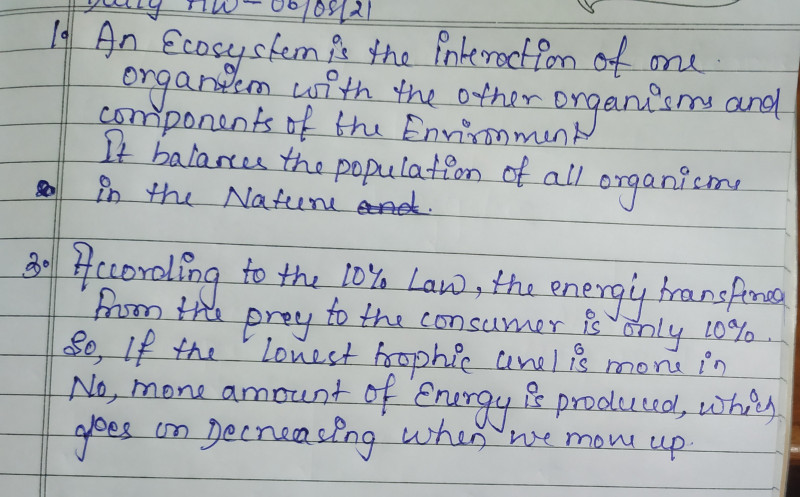 Daily HW - 06/08/21
1. An Ecosystem is the interaction of one
organism with the other organisms and
components of the Environment
It balances the population of all organisms
in the Nature and.
3. According to the 10% Law, the energy transferred
from the prey to the consumer is only 10%.
So, If the lowest trophic level is more in
No, more amount of Energy is produced, which
goes on Decreasing when we move up.